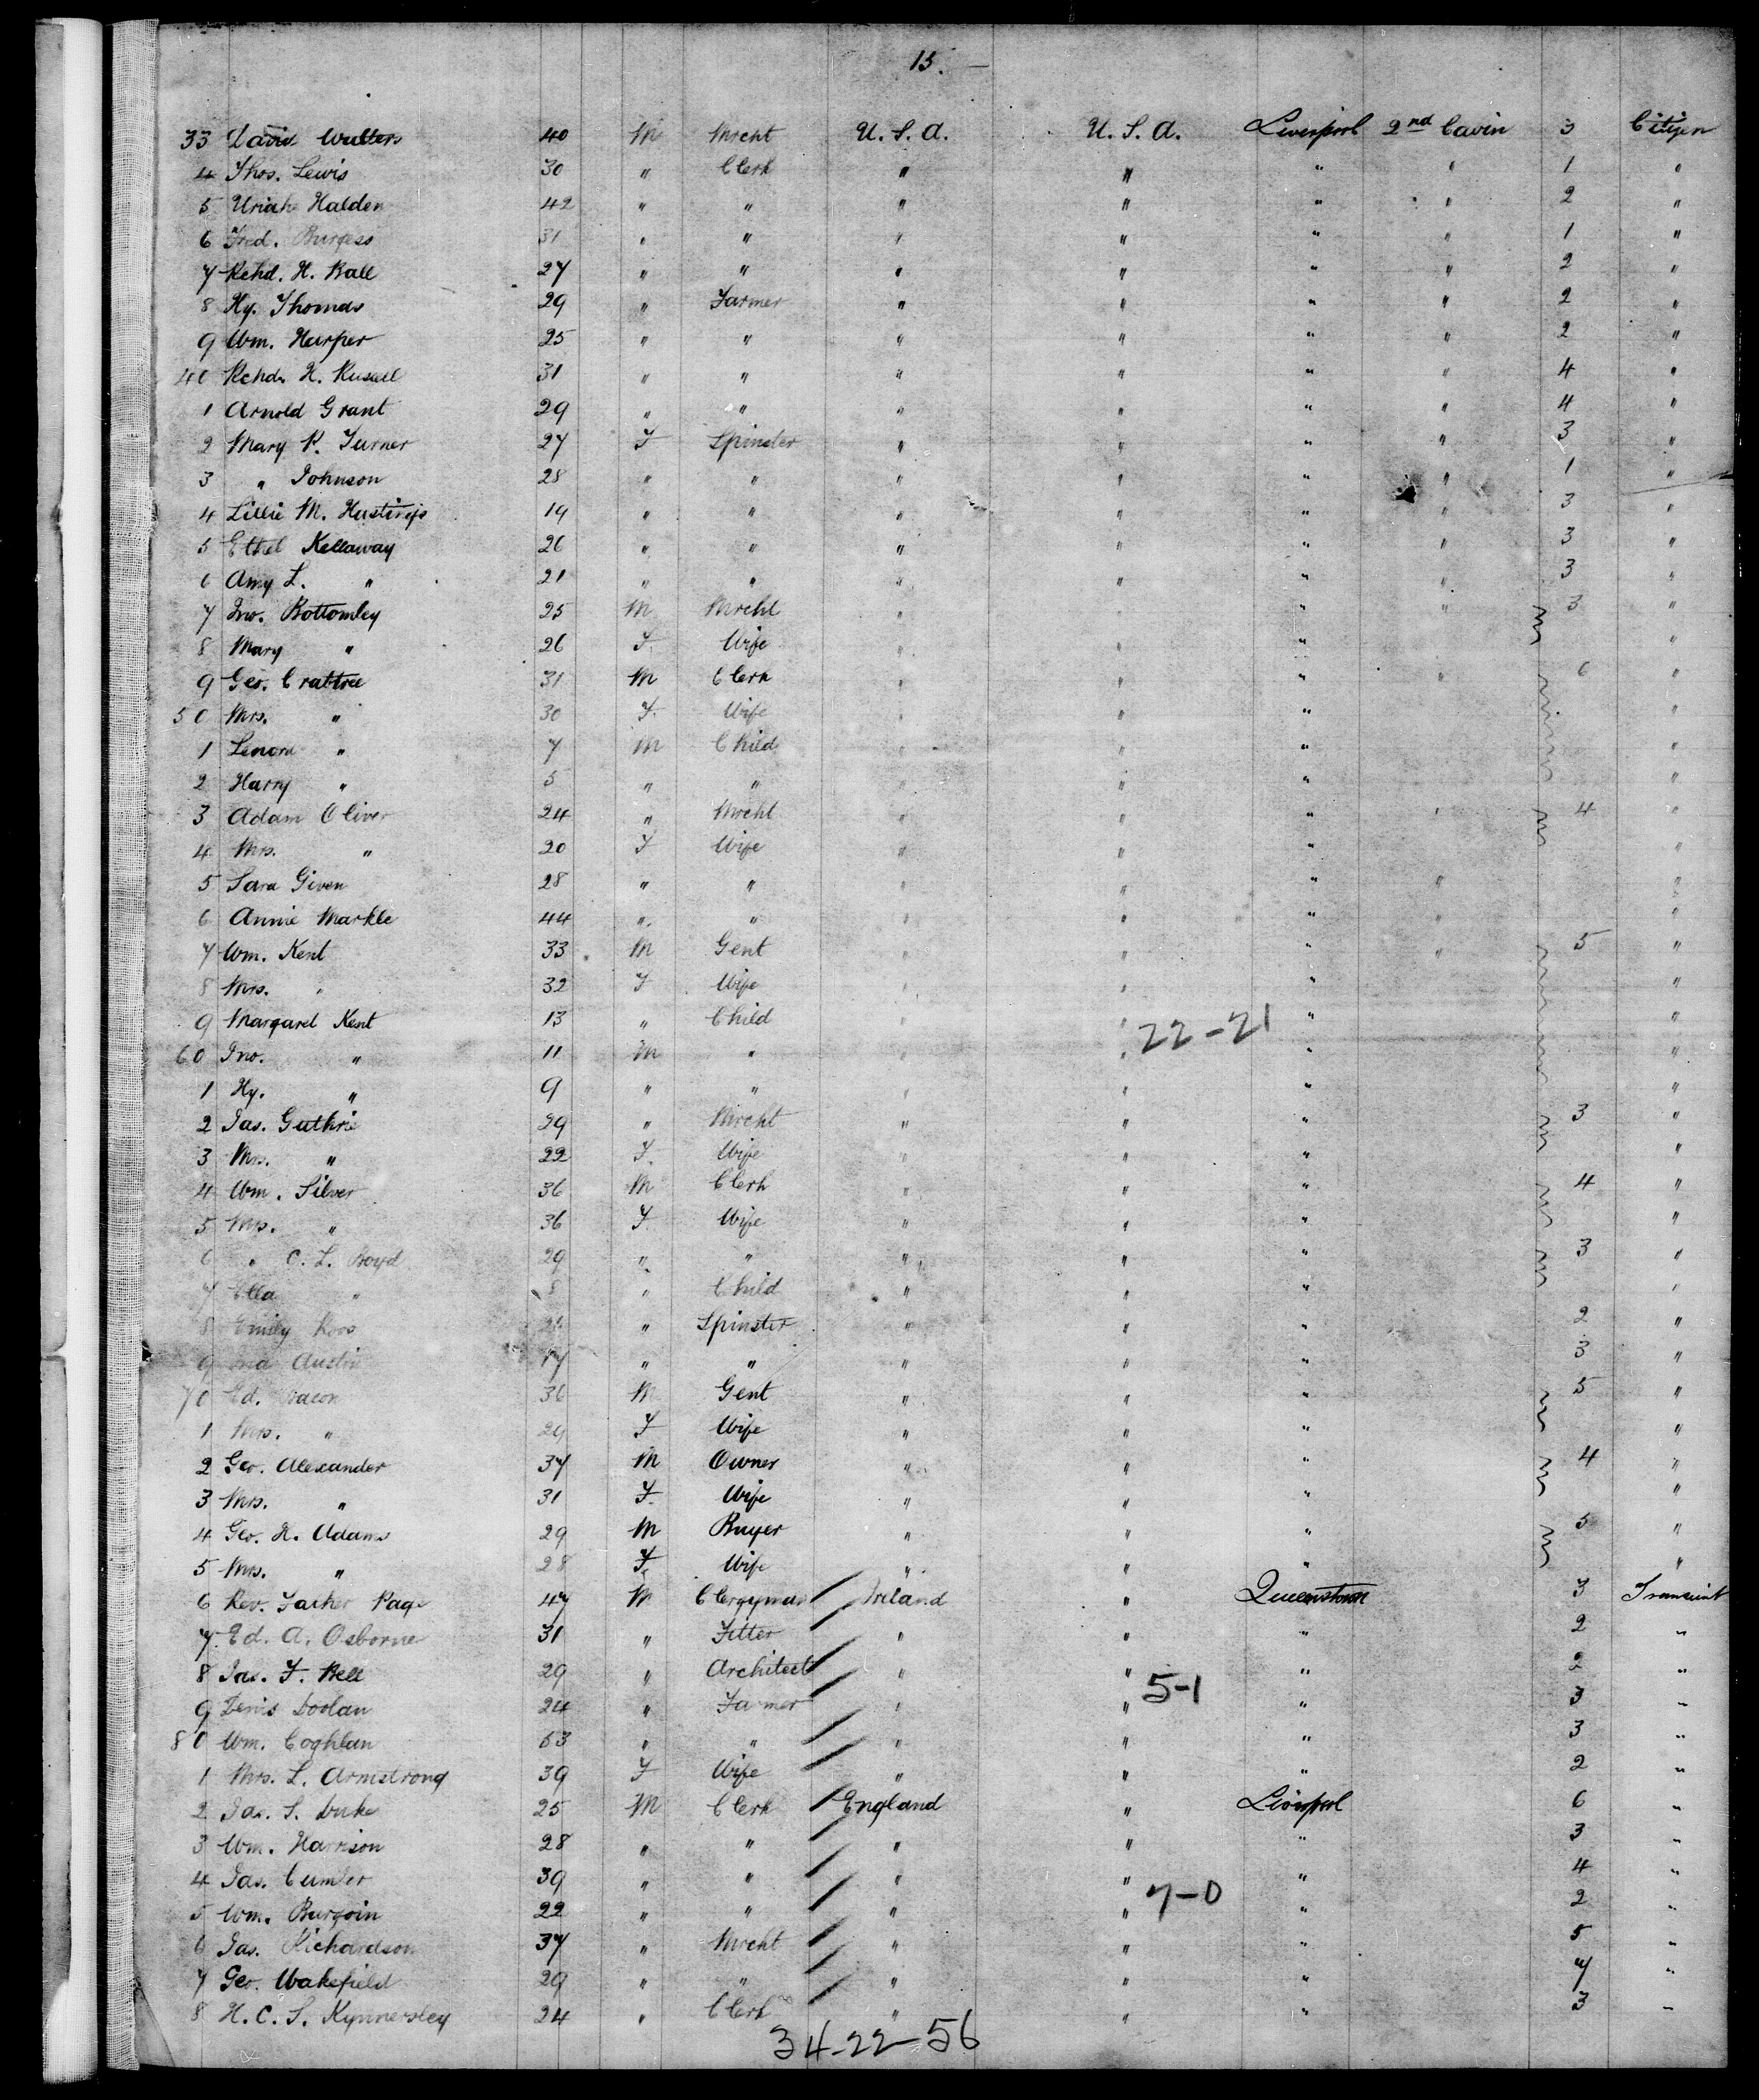 15.
33 David Walters 40 M Mrcht U. S. A. U. S. A. Liverpool 2nd Cavin 3 Citizen
4 Thos. Lewis 30 " Clerk " " " " 1 "
5 Uriah Halden 42 " " " " " " 2 "
6 Fred. Burgess 31 " " " " " " 1 "
7 Rchd. H. Ball 27 " " " " " " 2 "
8 Hy. Thomas 29 " Farmer " " " " 2 "
9 Wm. Harper 25 " " " " " " 2 "
40 Rchd. H. Russell 31 " " " " " " 4 "
1 Arnold Grant 29 " " " " " " 4 "
2 Mary P. Turner 27 F Spinster " " " " 3 "
3 " Johnson 28 " " " " " " 1 "
4 Lillie M. Hastings 19 " " " " " " 3 "
5 Ethel Kellaway 26 " " " " " " 3 "
6 Amy L. " 21 " " " " " " 3 "
7 Jno. Bottomley 25 M Mrcht " " " " 3 "
8 Mary " 26 F. Wife " " " "
9 Geo. Crabtree 31 M Clerk " " " " 6 "
50 Mrs. " 30 F. Wife " " " "
1 Lenora " 7 M Child " " " "
2 Harry " 5 " " " " " "
3 Adam Oliver 24 " Mrcht " " " " 4 "
4 Mrs. " 20 F Wife " " " "
5 Sara Given 28 " " " " " " "
6 Annie Markle 44 " " " " " " "
7 Wm. Kent 33 M Gent " " " " 5 "
8 Mrs. " 32 F Wife " " " "
9 Margaret Kent 13 " Child " " 22-21 " "
60 Jno. " 11 M " " " " "
1 Hy. " 9 " " " " " "
2 Jas. Guthrie 29 " Mrcht " " " 3 "
3 Mrs. " 22 F. Wife " " " "
4 Wm. Silver 36 M Clerk " " " 4 "
5 Mrs. " 36 F. Wife " " " "
6 " C. L. Boyd 29 " " " " " 3 "
7 Ella " 8 " Child " " " "
8 Emily " Spinster " " " 2 "
9 Austin 17 " " " " " 3 "
70 Ed. 36 M Gent " " " 5 "
1 Mrs. " 29 F Wife " " " "
2 Geo. Alexander 37 M Owner " " " 4 "
3 Mrs. " 31 F. Wife " " " "
4 Geo. H. Adams 29 M Buyer " " " 5 "
5 Mrs. " 28 F. Wife " " " "
6 Rev. Father Page 47 M Clergyman Ireland " Queenstown 3 Transient
7 Ed. A. Osborne 31 " Fitter " " " 2 "
8 Jas. F. Bell 29 " Architect " " 5-1 " 2 "
9 Denis Doolan 24 " Farmer " " " 3 "
80 Wm. Coghlan 63 " " " " " 3 "
1 Mrs. L. Armstrong 39 F Wife " " " 2 "
2 Jas. S. Duke 25 M Clerk England " Liverpool 6 "
3 Wm. Harrison 28 " " " " " 3 "
4 Jas. 39 " " " " 7-0 " 4 "
5 Wm. Burgoin 22 " " " " " 2 "
6 Jas. Richardson 37 " Mrcht " " " 5 "
7 Geo. Wakefield 29 " " " " " 7 "
8 H. C. S. Kynnersley 24 " Clerk " " " 3 "
34-22-56